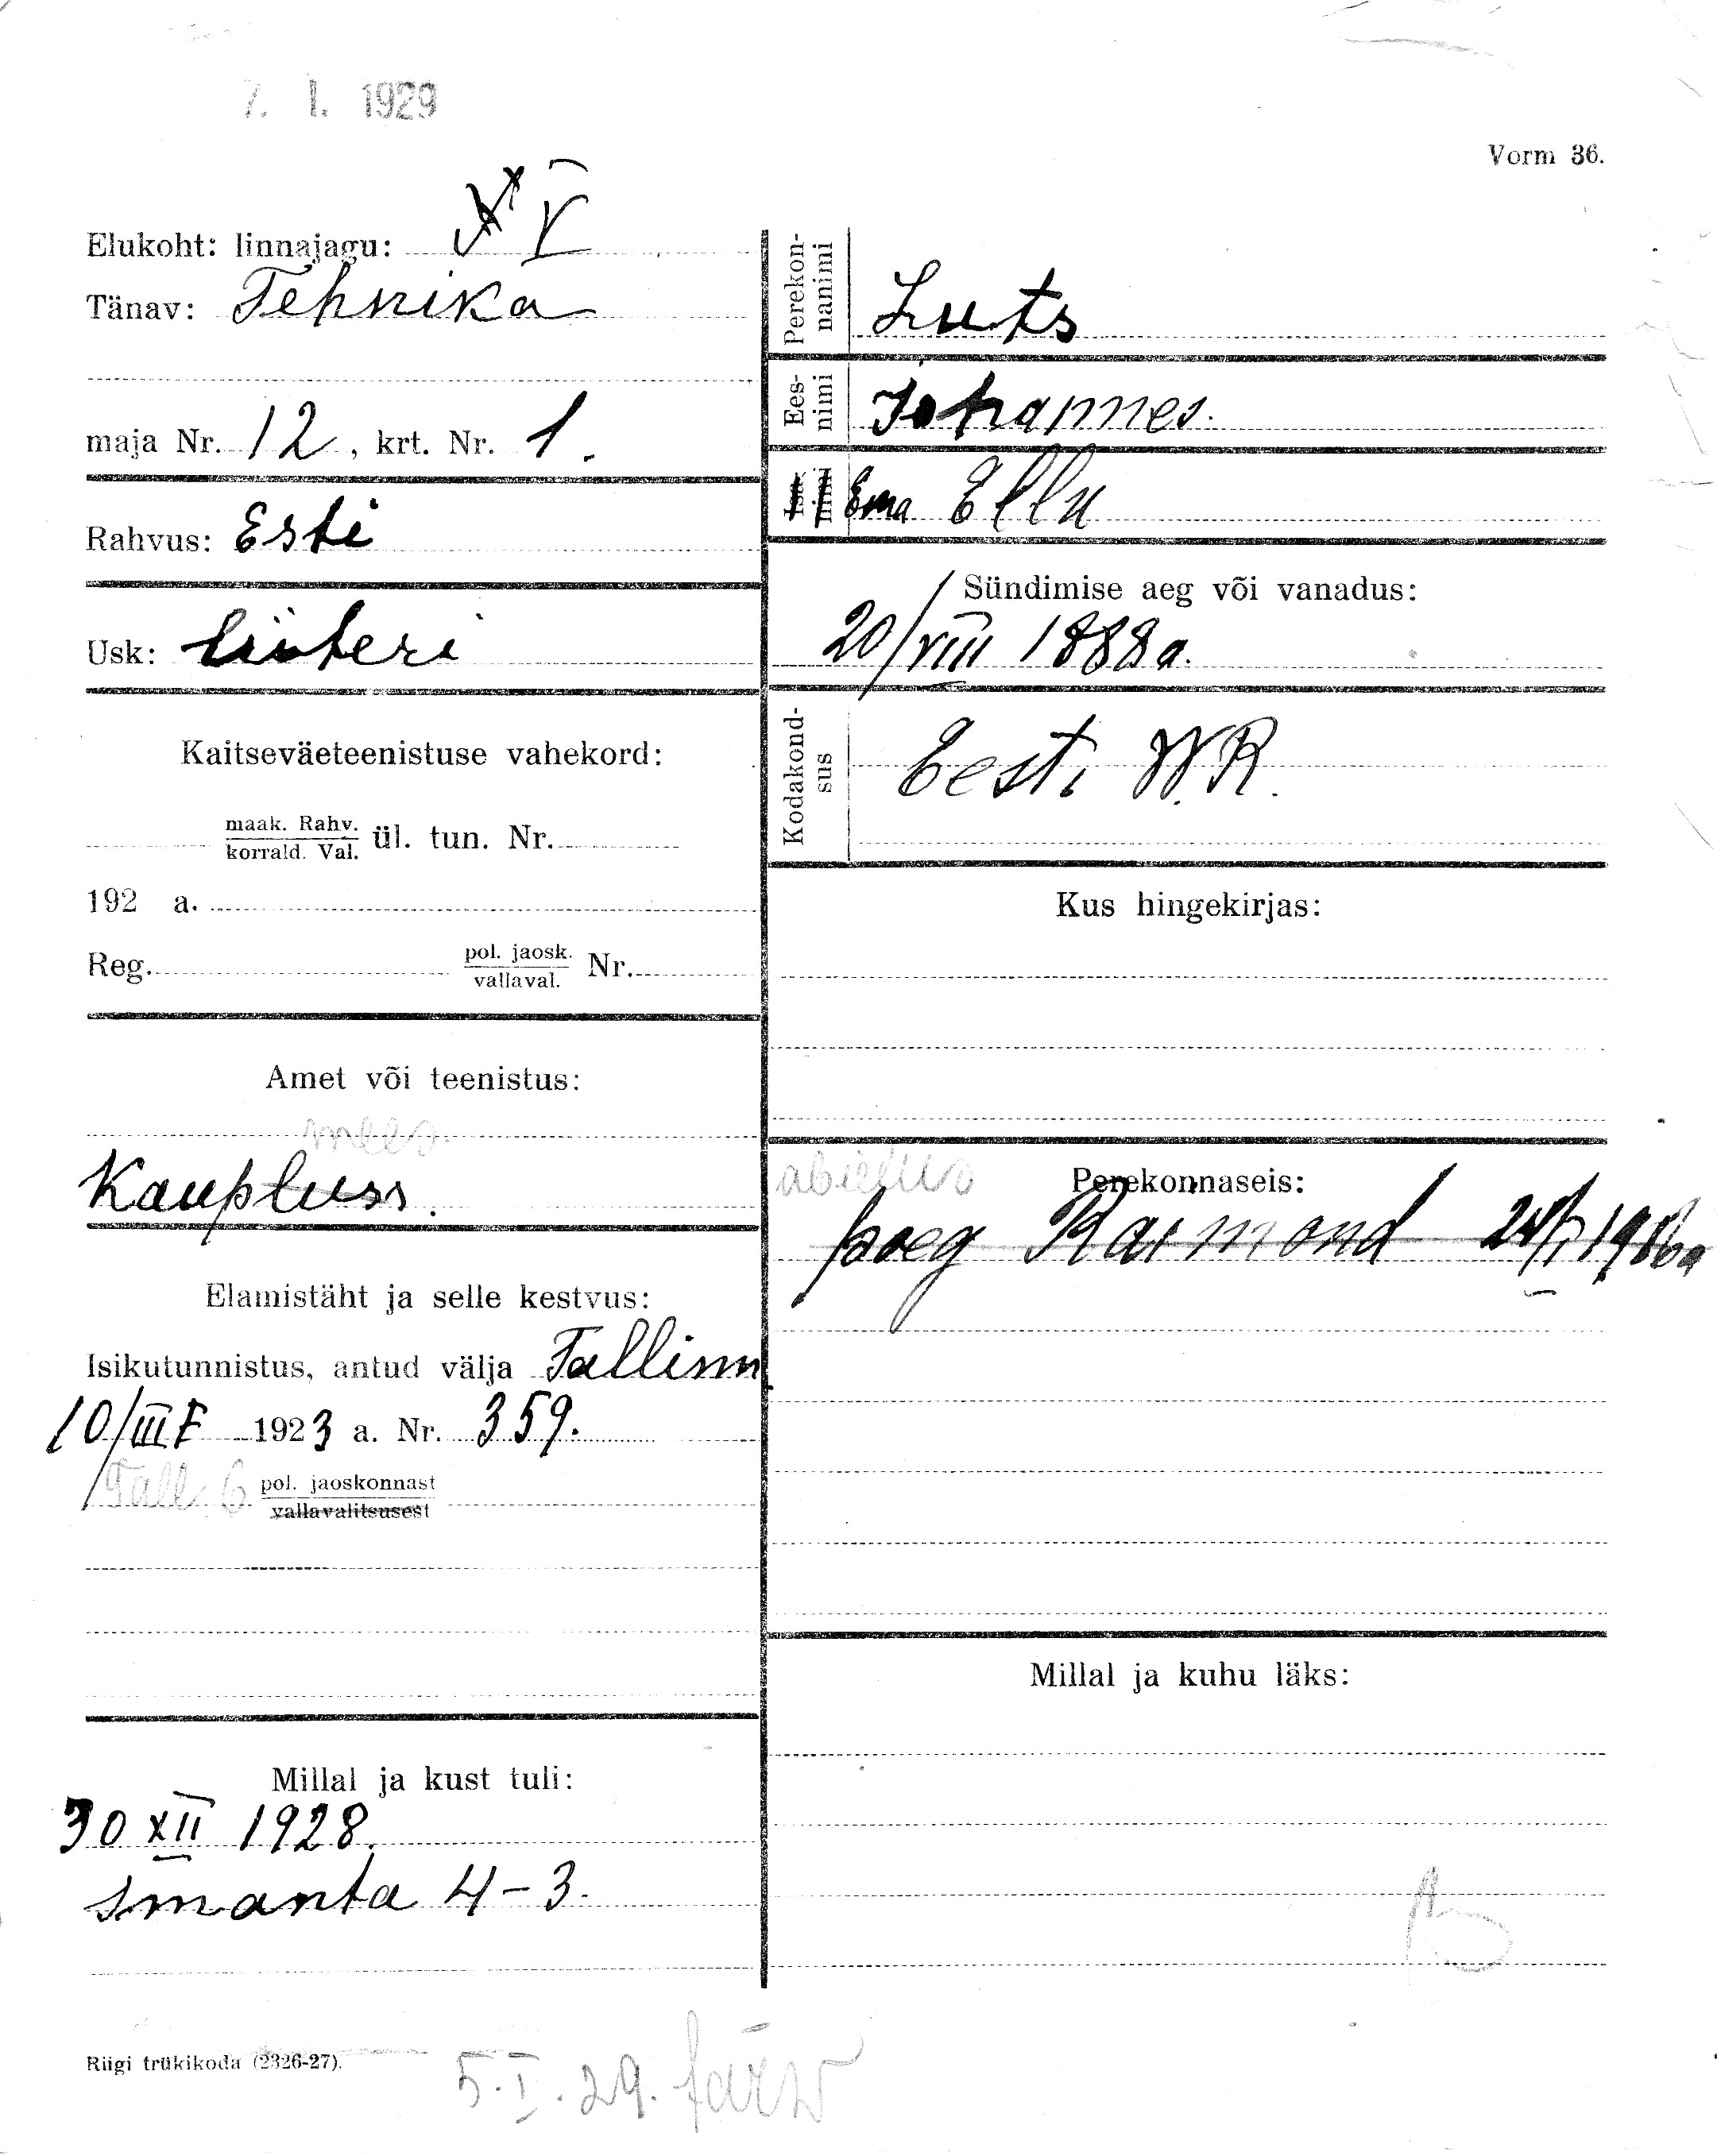 7. I. 1929
Vorm 36.
Elukoht: linnajagu: V
Tänav: Tehnika
maja Nr. 12, krt. Nr. 1.
Rahvus: Esti
Usk: luteri
Kaitseväeteenistuse vahekord:
maak. Rahv.
korrald. Val. ül. tun. Nr.
192 a.
Reg. pol. jaosk.
vallaval. Nr.
Amet või teenistus:
mees
Kaupluss.
Elamistäht ja selle kestvus:
Isikutunnistus, antud välja Tallinn
10/III 1923 a. Nr. 359.
Tall. 6. pol. jaoskonnast
vallavalitsusest
Millal ja kust tuli:
30 XII 1928.
Imanta 4-3.
Perekon-
nanimi Luts
Ees-
nimi Johannes.
Ema Ellu
Sündimise aeg või vanadus:
20/VIII 1888 a.
Kodakond-
sus Eesti W.R.
Kus hingekirjas:
abielus Perekonnaseis:
poeg Raimond
Millal ja kuhu läks:
Riigi trükikoda (2326-27).
5. I. 29.